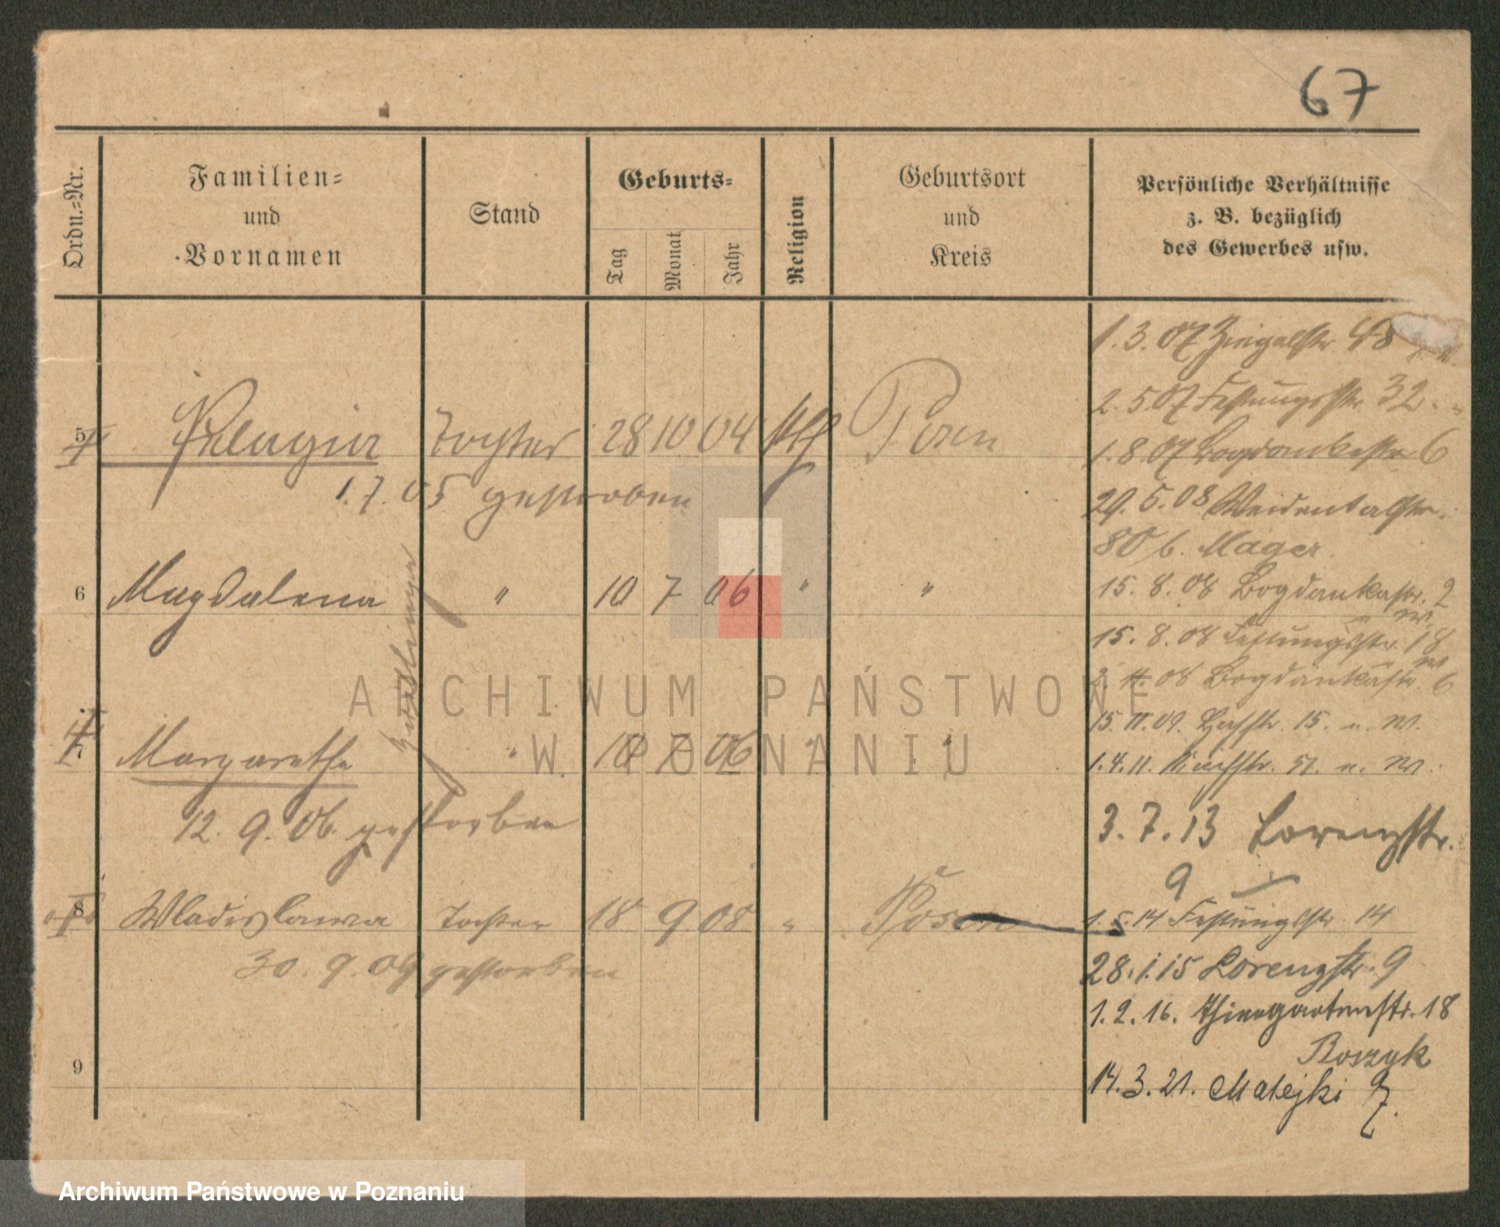 67
Ordn.-Nr.
Familien-
und
Vornamen
Stand
Geburts-
Tag
Monat
Jahr
Religion
Geburtsort
und
Kreis
Persönliche Verhältnisse
z. B. bezüglich
des Gewerbes usw.
5 Pelagia Tochter 28 10 04 kth Posen
1.7.05 gestorben
6 Magdalena " 10 7 06 " "
Zwillinge
7 Margarethe " 10 7 06 " "
12. 9. 06. gestorben
8 Wladislawa Tochter 18 9 08 " Posen
30. 9. 09 gestorben
9
1. 3. 07 Ziegelstr. 48
2. 5. 07 Festungsstr. 32
1. 8. 07 Bogdankastr 6
29. 5. 08 Weidentalstr.
80 b. Mager.
15. 8. 08 Bogdankastr. 2
15. 8. 08 Festungsstr. 18
2. 11. 08 Bogdankastr. 6
15. 11. 09. 15. u. W.
1. 4. 11. 51. u. W.
3. 7. 13 Lorenzstr.
9
1. 5. 14 Festungsstr. 14
28. 1. 15 Lorenzstr. 9
1. 2. 16. Thiergartenstr. 18
Roszyk
14. 3. 21. Matejki
ARCHIWUM PAŃSTWOWE
W POZNANIU
Archiwum Państwowe w Poznaniu